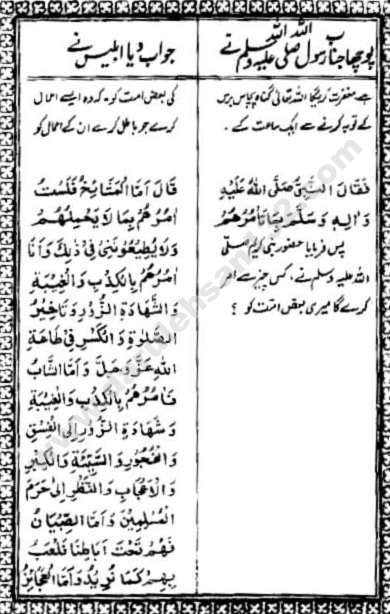 پوچھا جناب رسول اللہ صلی اللہ علیہ وسلم نے
جے مغفرت کریگا اللہ تعالیٰ گناہ پچاس برس
کے توبہ کرنے سے ایک ساعت کے۔
فَقَالَ النَّبِيُّ صَلَّى اللهُ عَلَيْهِ
وَاٰلِهٖ وَسَلَّمَ بِمَا تَأْمُرُهُمْ
پس فرمایا حضور نبی کریم صلی
اللہ علیہ وسلم نے، کس چیز سے امر
کرے گا میری بعض امت کو؟
جواب دیا ابلیس نے
کی بعض امت کو۔ کردہ ایسے اعمال
کرے جو باطل کرے ان کے اعمال کو
قَالَ اَمَّا الْمَشَائِخُ فَلَسْتُ
اٰمُرُهُمْ بِمَا لَا يَحْمِلُهُمْ
وَلَا يُطِيْعُوْنَنِيْ فِيْ ذٰلِكَ وَاَنَا
اٰمُرُهُمْ بِالْكِذْبِ وَالْغِيْبَةِ
وَالشَّهَادَةِ الزُّوْرِ وَتَاخِيْرِ
الصَّلٰوةِ وَالْكَسْرِ فِيْ طَاعَةِ
اللهِ عَزَّ وَجَلَّ وَاَمَّا الشَّابُّ
فَاٰمُرُهُمْ بِالْكِذْبِ وَالْغِيْبَةِ
وَشَهَادَةِ الزُّوْرِ اِلَى الْفِسْقِ
وَالْفُجُوْرِ وَالسَّيِّئَةِ وَالْكِبْرِ
وَالْاِعْجَابِ وَالنَّظْرِ اِلٰى حَرَمِ
الْمُسْلِمِيْنَ وَاَمَّا الصِّبْيَانُ
فَهُمْ تَحْتَ اٰبَاطِنَا نَلْعَبُ
بِهِمْ كَمَا نُرِيْدُ وَاَمَّا الْعَجَائِزُ